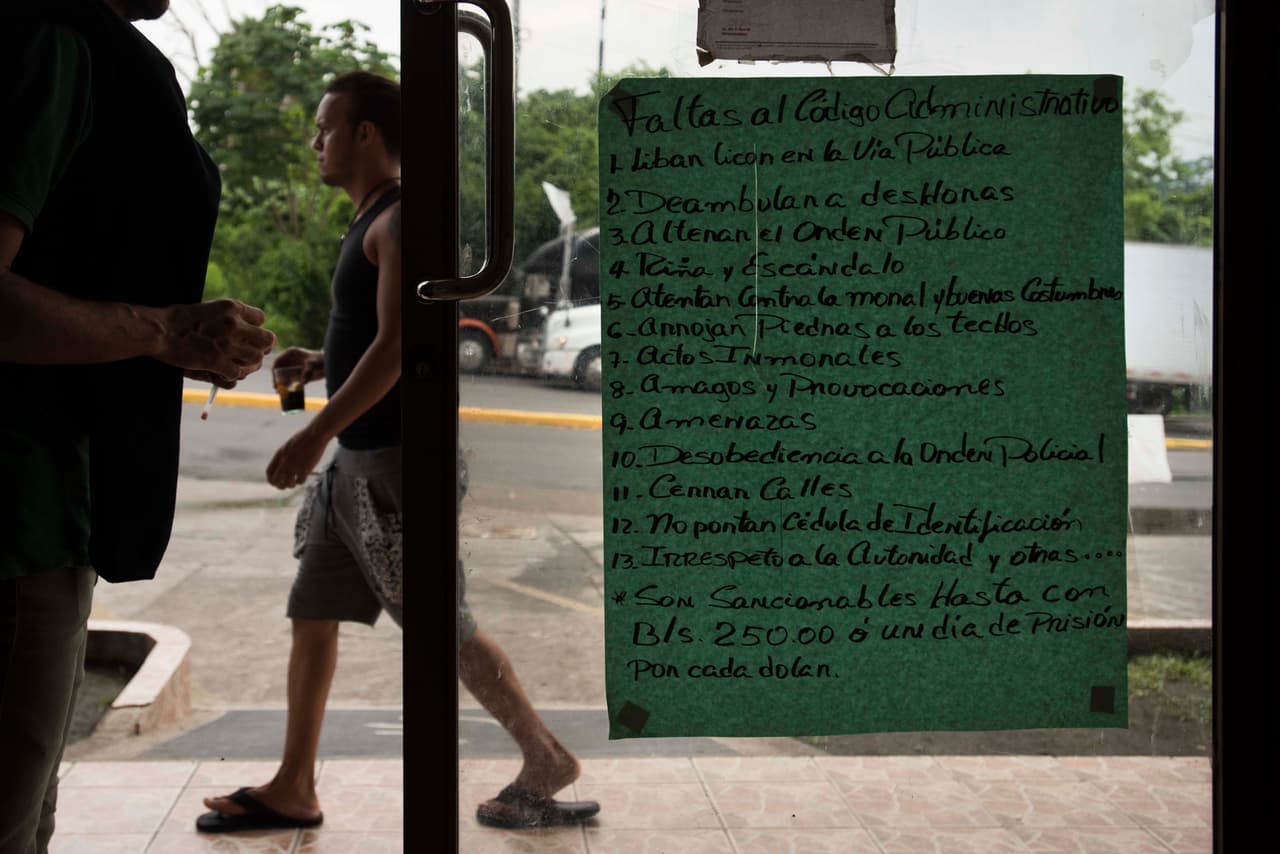 Faltas al Código Administrativo
1. Liban licor en la Vía Pública
2. Deambular a desHoras
3. Alterar el Orden Público
4. Riña y Escándalo
5. Atentar Contra la moral y buenas Costumbres
6. Arrojar Piedras a los tecHos
7. Actos Inmorales
8. Amagos y Provocaciones
9. Amenazas
10. Desobediencia a la Orden Policial
11. Cerrar Calles
12. No portar Cédula de Identificación
13. IRRespeto a la Autoridad y otras....
* Son Sancionables Hasta con
B/s. 250.00 ó un día de Prisión
Por cada dolar.